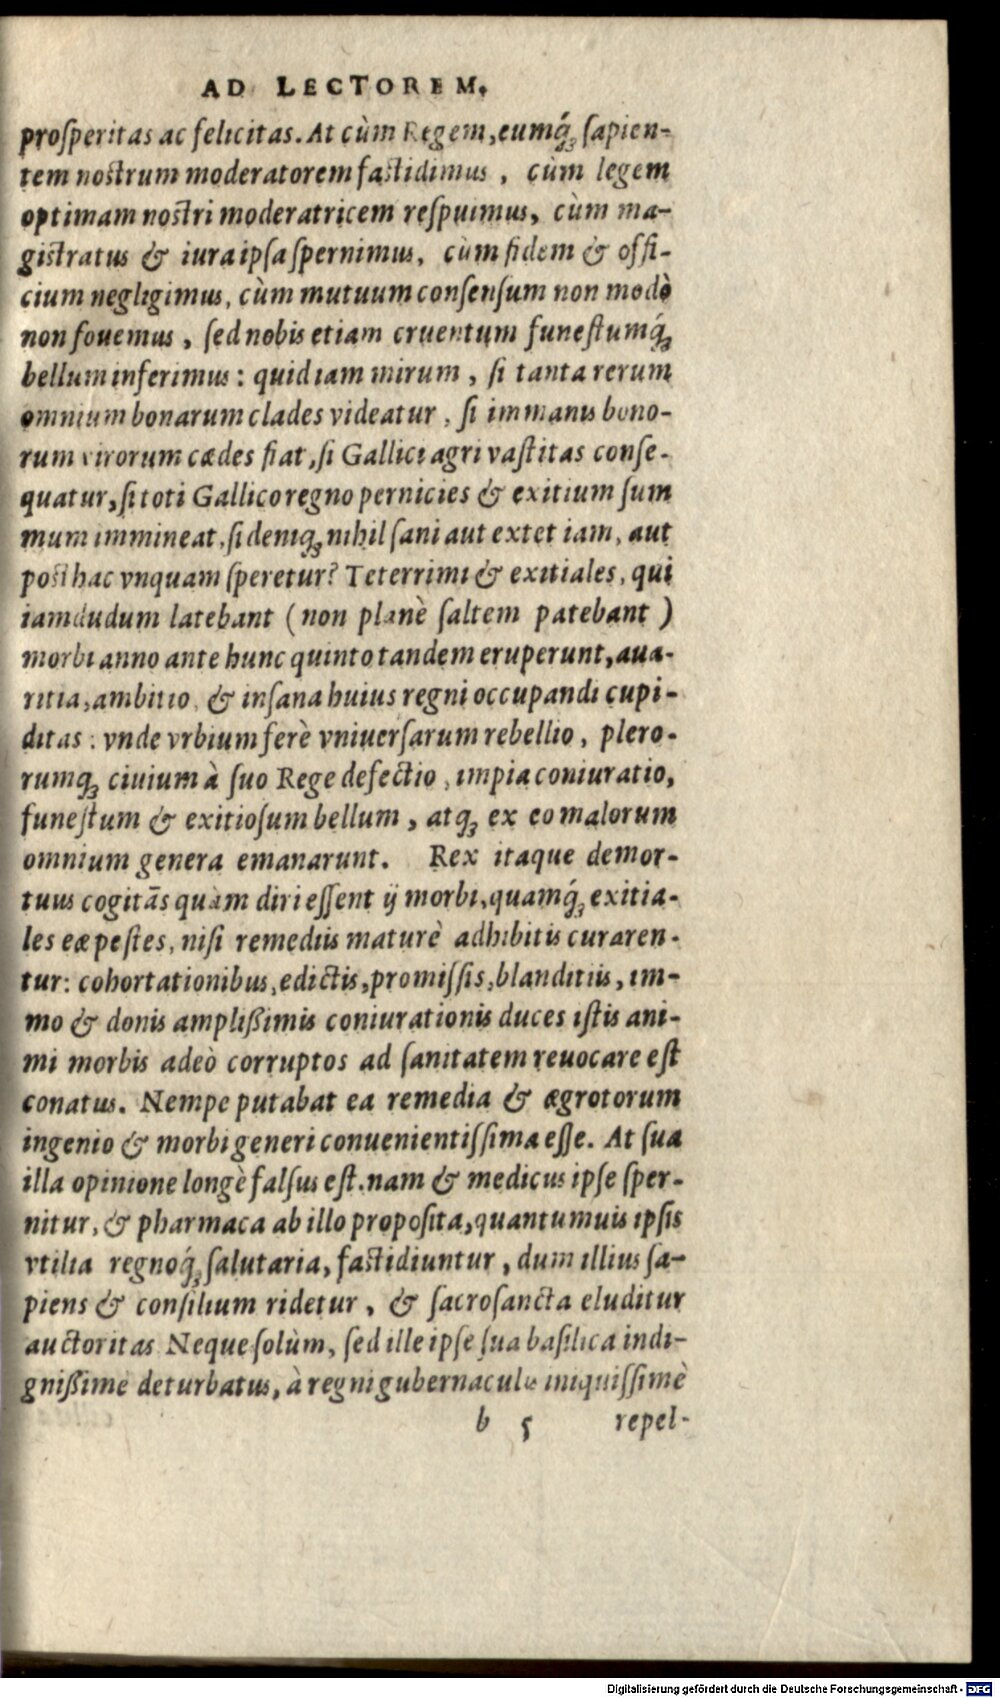 AD LECTOREM.
proſperitas ac felicitas. At cùm Regem, eumq́ꝫ ſapien-
tem nostrum moderatorem fastidimus, cùm legem
optimam nostri moderatricem reſpuimus, cùm ma-
gistratus & iura ipſa ſpernimus, cùm fidem & offi-
cium negligimus, cùm mutuum conſenſum non modò
non fouemus, ſed nobis etiam cruentum funeſtumq́ꝫ
bellum inferimus: quid iam mirum, ſi tanta rerum
omnium bonarum clades videatur, ſi immanis bono-
rum virorum cædes fiat, ſi Gallici agri vaſtitas conſe-
quatur, ſi toti Gallico regno pernicies & exitium ſum
mum immineat, ſi deniqꝫ nihil ſani aut extet iam, aut
posthac vnquam ſperetur? Teterrimi & exitiales, qui
iamdudum latebant (non planè ſaltem patebant)
morbi anno ante hunc quinto tandem eruperunt, aua-
ritia, ambitio, & inſana huius regni occupandi cupi-
ditas: vnde vrbium ferè vniuerſarum rebellio, plero-
rumqꝫ ciuium à ſuo Rege defectio, impia coniuratio,
funeſtum & exitioſum bellum, atqꝫ ex eo malorum
omnium genera emanarunt. Rex itaque demor-
tuus cogitãs quàm diri eſſent ij morbi, quamq́ꝫ exitia-
les eæ peſtes, niſi remediis maturè adhibitis curaren-
tur: cohortationibus, edictis, promiſſis, blanditiis, im-
mo & donis ampliſſimis coniurationis duces iſtis ani-
mi morbis adeò corruptos ad ſanitatem reuocare eſt
conatus. Nempe putabat ea remedia & ægrotorum
ingenio & morbi generi conuenientiſſima eſſe. At ſua
illa opinione longè falſus eſt. nam & medicus ipſe ſper-
nitur, & pharmaca ab illo propoſita, quantumuis ipſis
vtilia regnoq́ꝫ ſalutaria, fastidiuntur, dum illius ſa-
piens & conſilium ridetur, & ſacroſancta eluditur
auctoritas Neque ſolùm, ſed ille ipſe ſua baſilica indi-
gniſſimè deturbatus, à regni gubernaculis iniquiſſimè
b 5 repel-
Digitalisierung gefördert durch die Deutsche Forschungsgemeinschaft - DFG